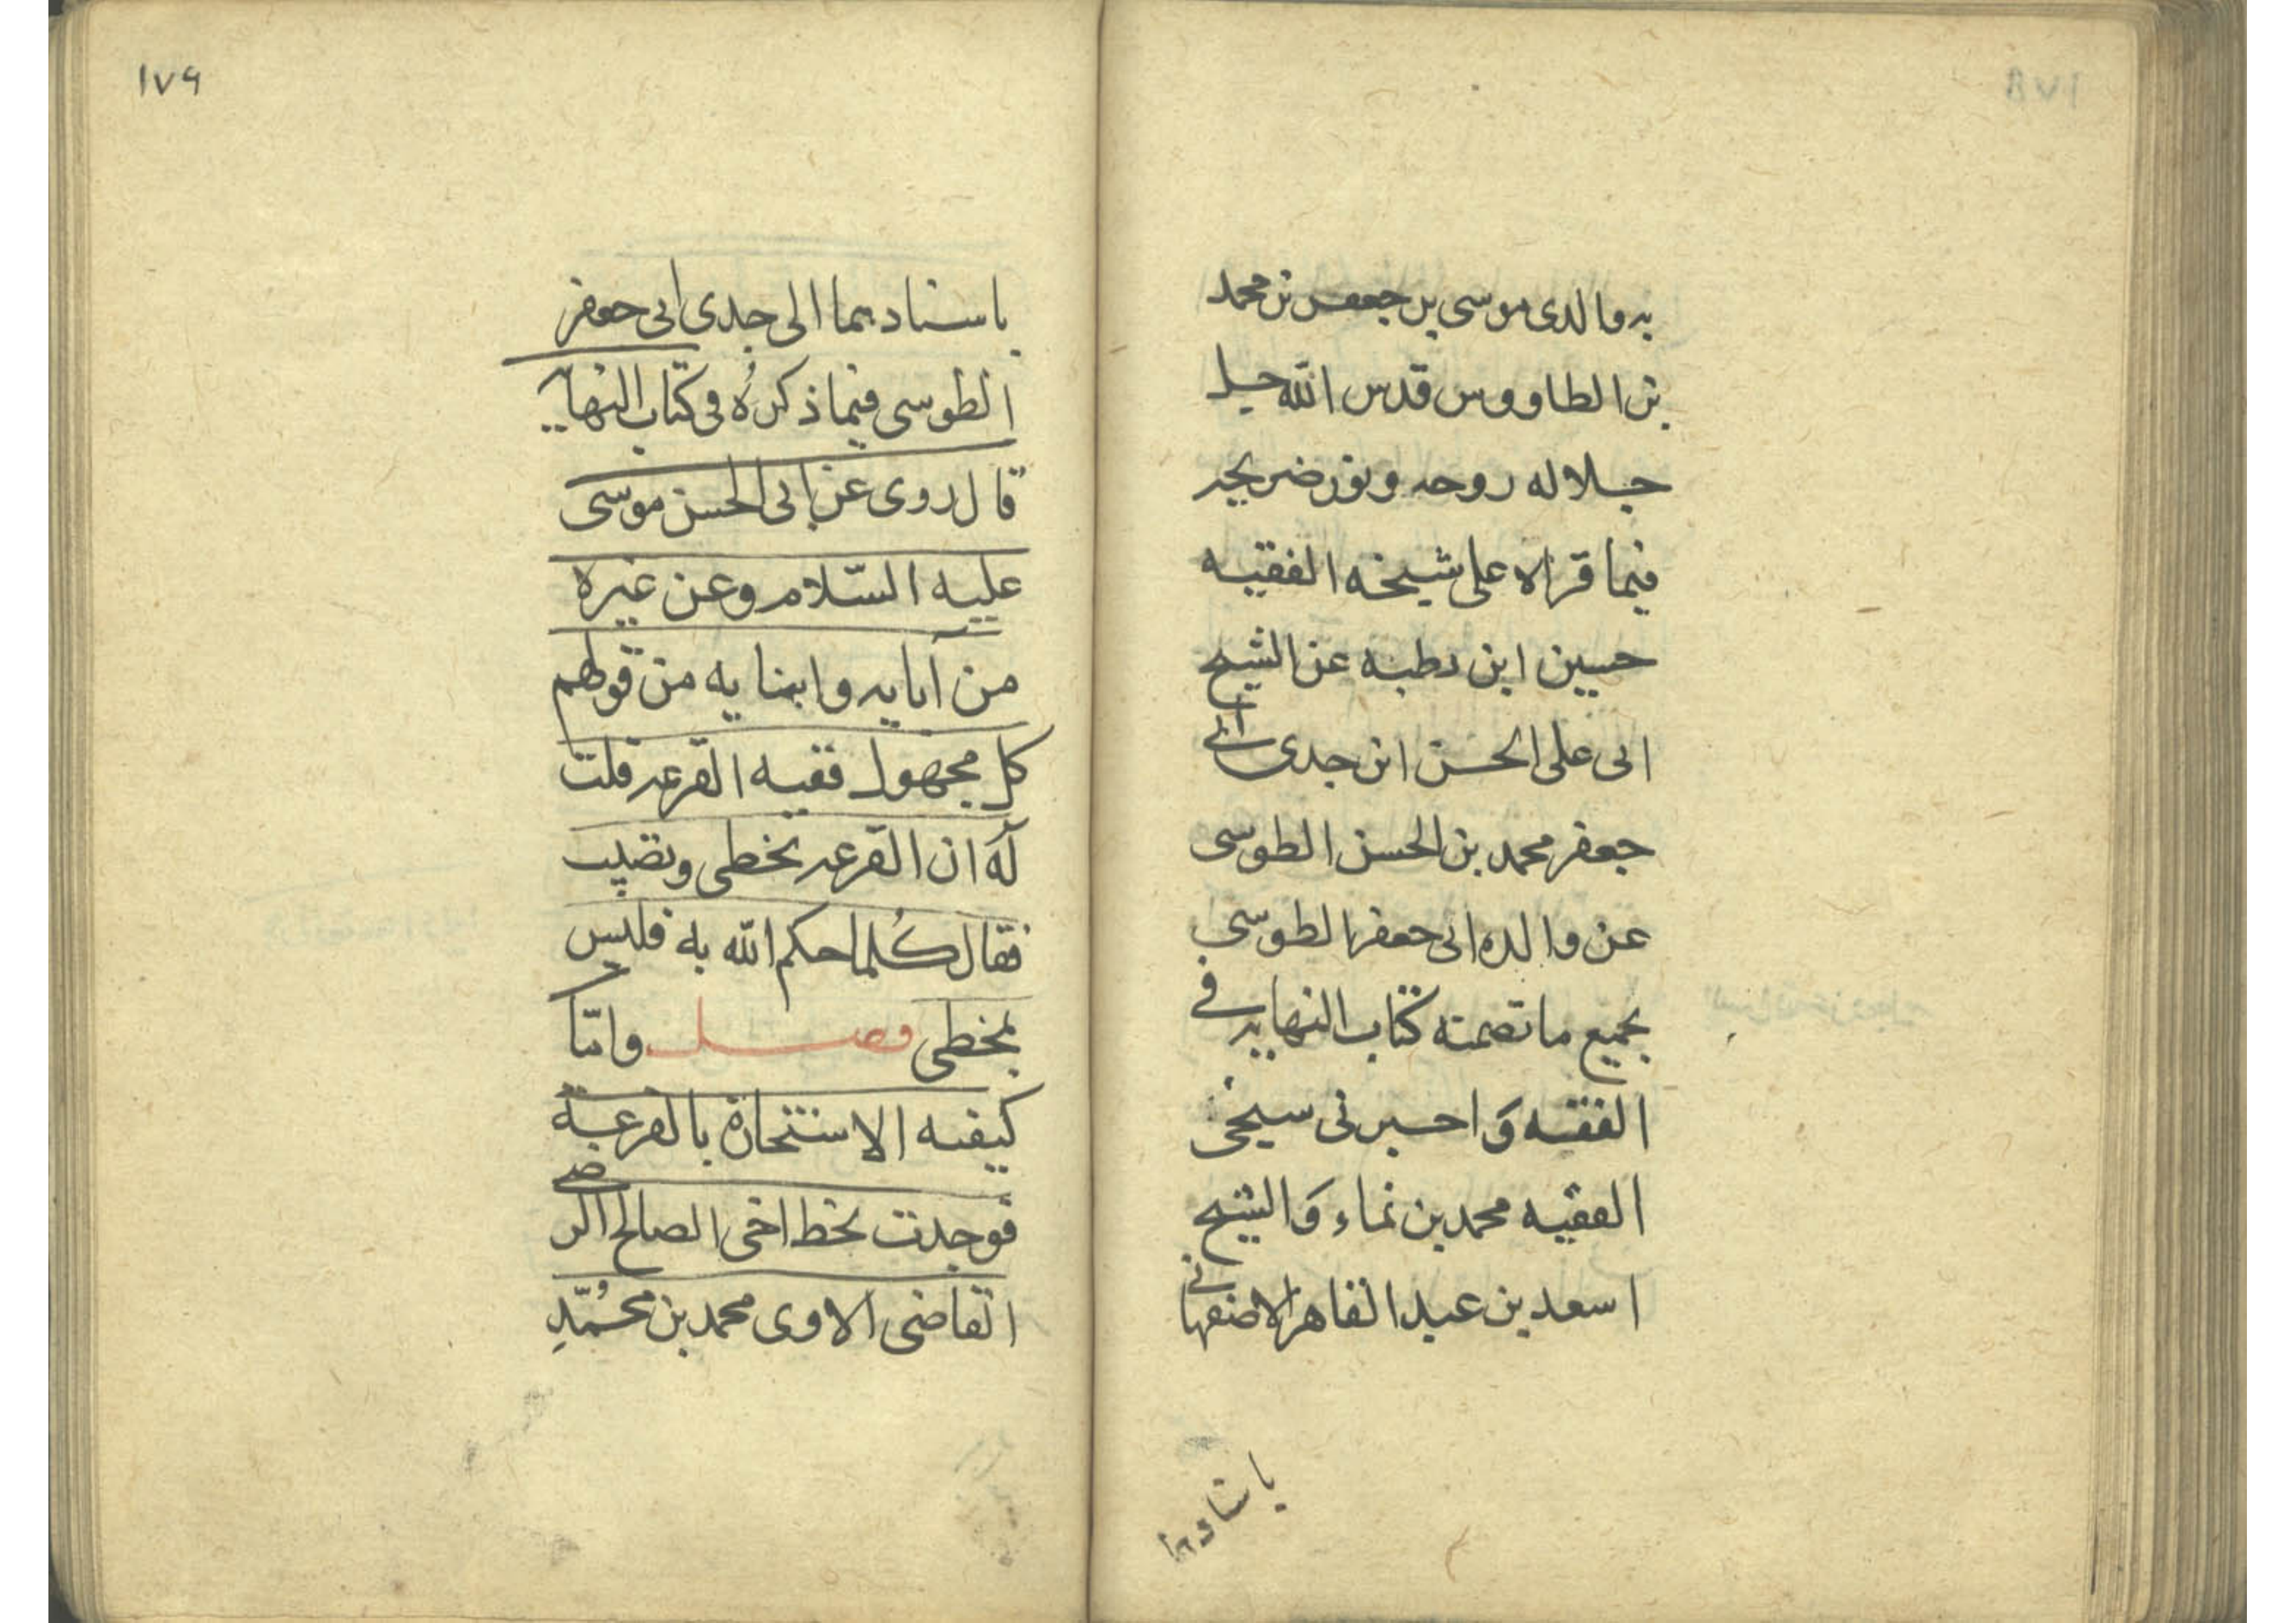 به والدى موسى بن جعفر بن محمد
بن الطاووس قدس الله جل
جلاله روحه ونور ضريحه
فيما قراه على شيخه الفقيه
حسين ابن رطبه عن الشيخ
ابى على الحسن ابن جدى أبي
جعفر محمد بن الحسن الطوسى
عن والده ابى جعفر الطوسى
بجميع ما تضمنه كتاب النهايه في
الفقيه وَ اخبرنى شيخى
الفقيه محمد بن نماء وَ الشيخ
اسعد بن عبد القاهر الاصفهانى
باسنادهما
١٧٩
باسنادهما الى جدى ابى جعفر
الطوسى فيما ذكرهُ فى كتاب النهايه
قال روى عن ابى الحسن موسى
عليه السّلام وعن غيره
من آبايه وابنايه من قولهم
كل مجهول ففيه القرعه قلت
لَهُ ان القرعه تخطى وتصيب
فقال كُلما حكم الله به فليس
بمخطى فصل وامّا
كيفيه الاستخارة بالقرعة
فوجدت بخط اخى الصالح الرضي
القاضى الاوى محمد بن محُمّدِ